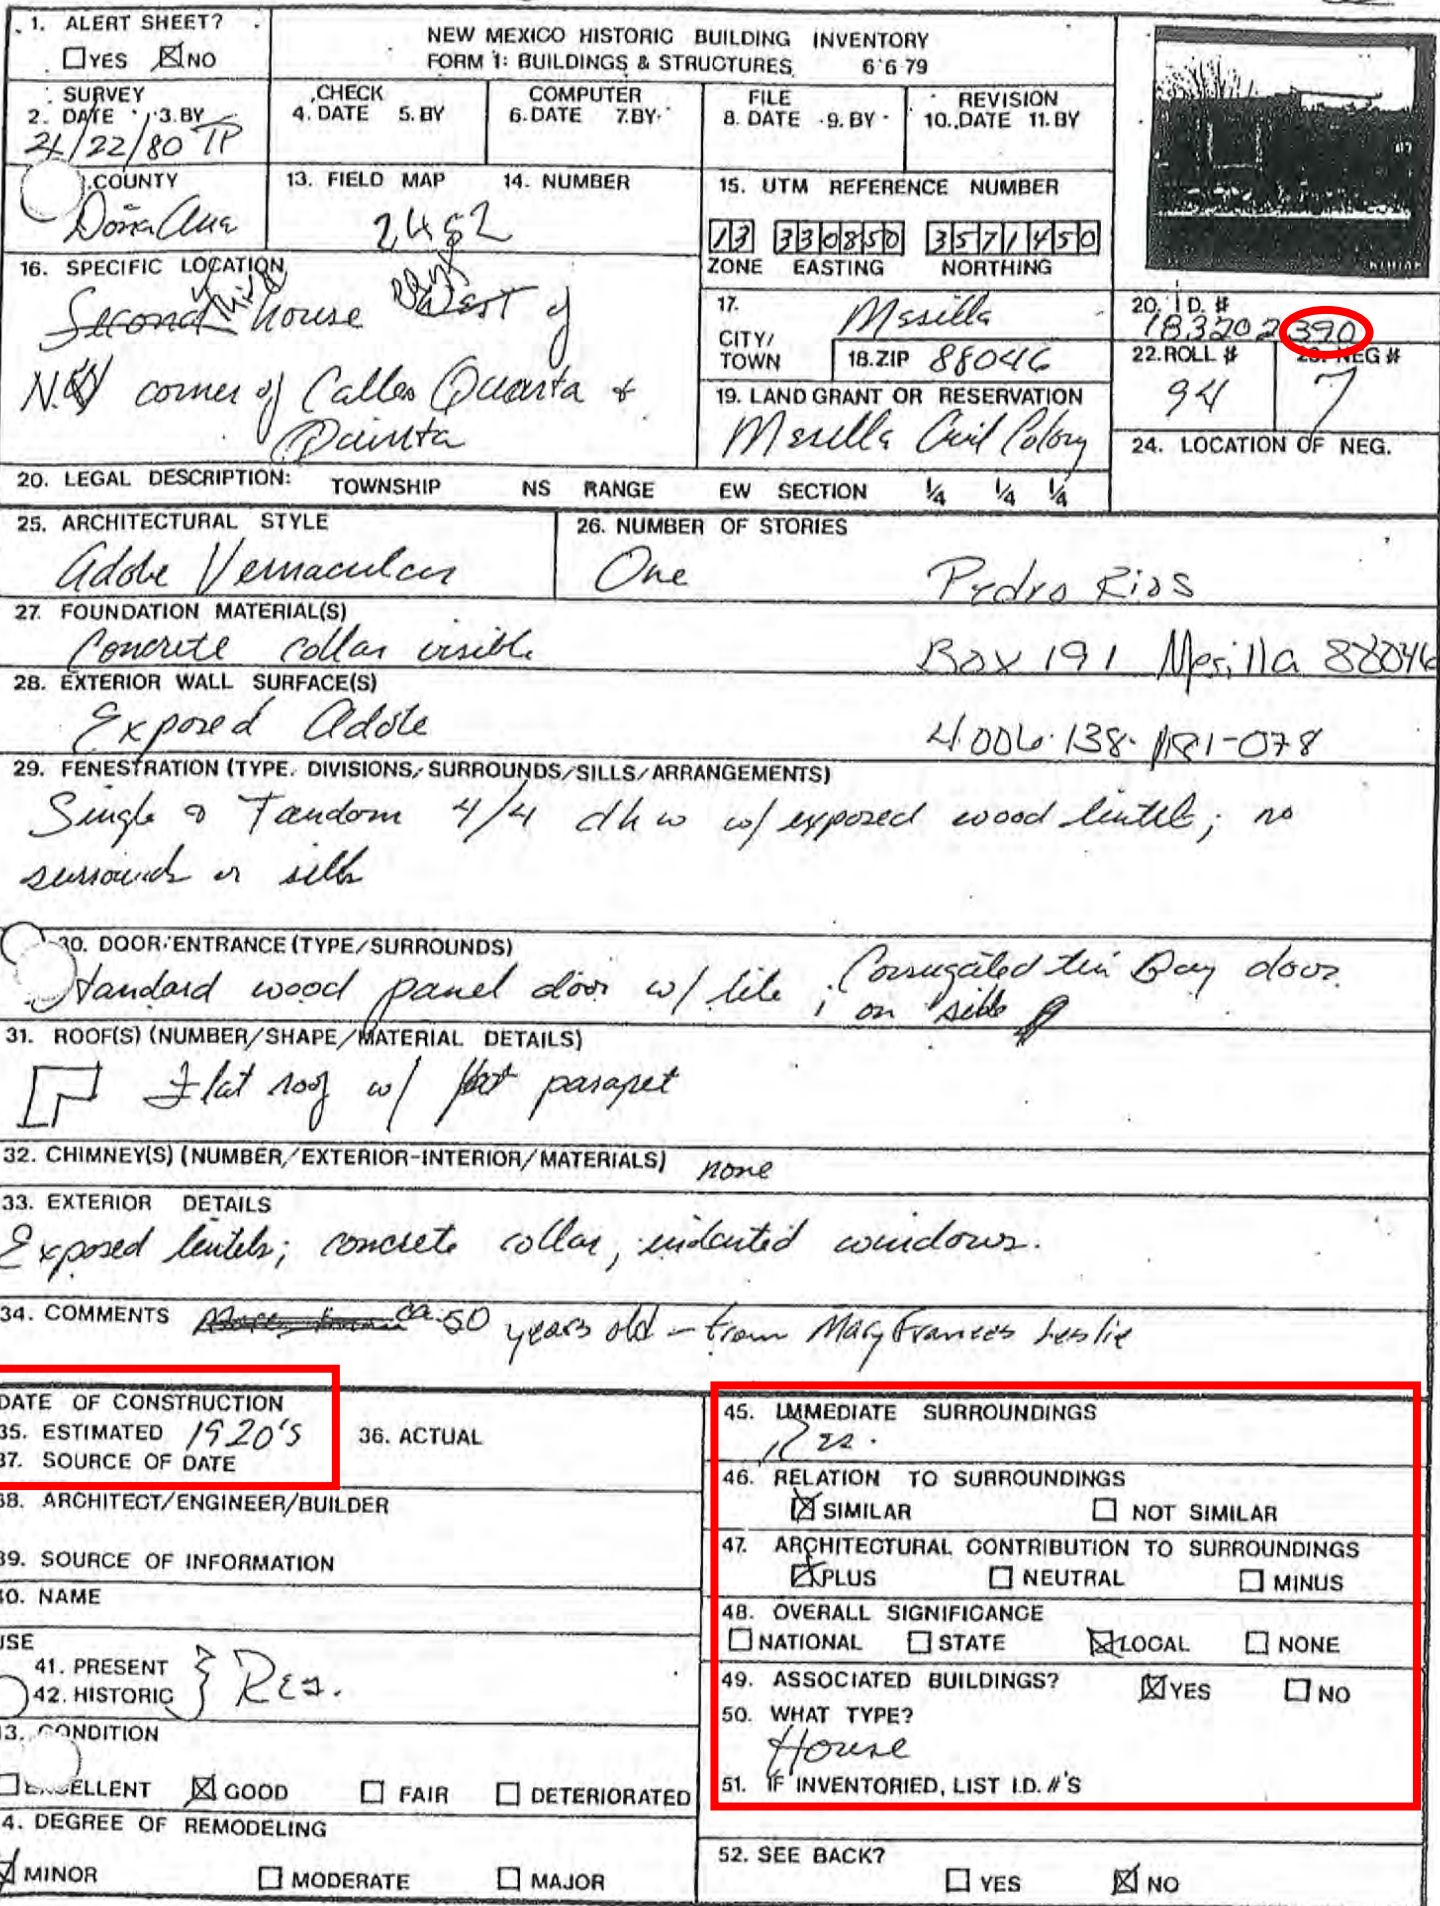 1. ALERT SHEET?
☐ YES ☒ NO
NEW MEXICO HISTORIC BUILDING INVENTORY
FORM 1: BUILDINGS & STRUCTURES 6·6·79
SURVEY
2. DATE 3. BY
/22/80 TP
CHECK
4. DATE 5. BY
COMPUTER
6. DATE 7. BY
FILE
8. DATE 9. BY
REVISION
10. DATE 11. BY
COUNTY
Doña Ana
13. FIELD MAP 14. NUMBER
2452
15. UTM REFERENCE NUMBER
13 330850 3571450
ZONE EASTING NORTHING
16. SPECIFIC LOCATION
Second Third house West of
N. corner of Calles Quarta &
Quinta
17.
CITY/
TOWN
Mesilla
18. ZIP 88046
19. LAND GRANT OR RESERVATION
Mesilla Civil Colony
20. I D. #
183202390
22. ROLL # 23. NEG #
94 7
24. LOCATION OF NEG.
20. LEGAL DESCRIPTION: TOWNSHIP NS RANGE EW SECTION ¼ ¼ ¼
25. ARCHITECTURAL STYLE
Adobe Vernacular
26. NUMBER OF STORIES
One
Pedro Rios
27. FOUNDATION MATERIAL(S)
Concrete collar visible
Box 191 Mesilla 88046
28. EXTERIOR WALL SURFACE(S)
Exposed Adobe
4.006.138.181-078
29. FENESTRATION (TYPE, DIVISIONS/SURROUNDS/SILLS/ARRANGEMENTS)
Single & Tandom 4/4 dhw w/ exposed wood lintels; no
surrounds or sills
30. DOOR/ENTRANCE (TYPE/SURROUNDS)
Standard wood panel door w/ lite; Corrugated tin Bay door
on side
31. ROOF(S) (NUMBER/SHAPE/MATERIAL DETAILS)
Flat roof w/ parapet
32. CHIMNEY(S) (NUMBER/EXTERIOR-INTERIOR/MATERIALS) none
33. EXTERIOR DETAILS
Exposed lentels; concrete collar, indented windows.
34. COMMENTS ca. 50 years old - from Mary Frances Leslie
DATE OF CONSTRUCTION
35. ESTIMATED 1920's 36. ACTUAL
37. SOURCE OF DATE
38. ARCHITECT/ENGINEER/BUILDER
39. SOURCE OF INFORMATION
40. NAME
USE
41. PRESENT
42. HISTORIC
Res.
43. CONDITION
☐ EXCELLENT ☒ GOOD ☐ FAIR ☐ DETERIORATED
44. DEGREE OF REMODELING
☒ MINOR ☐ MODERATE ☐ MAJOR
45. IMMEDIATE SURROUNDINGS
Res.
46. RELATION TO SURROUNDINGS
☒ SIMILAR ☐ NOT SIMILAR
47. ARCHITECTURAL CONTRIBUTION TO SURROUNDINGS
☒ PLUS ☐ NEUTRAL ☐ MINUS
48. OVERALL SIGNIFICANCE
☐ NATIONAL ☐ STATE ☒ LOCAL ☐ NONE
49. ASSOCIATED BUILDINGS? ☒ YES ☐ NO
50. WHAT TYPE?
House
51. IF INVENTORIED, LIST I.D. #'S
52. SEE BACK?
☐ YES ☒ NO